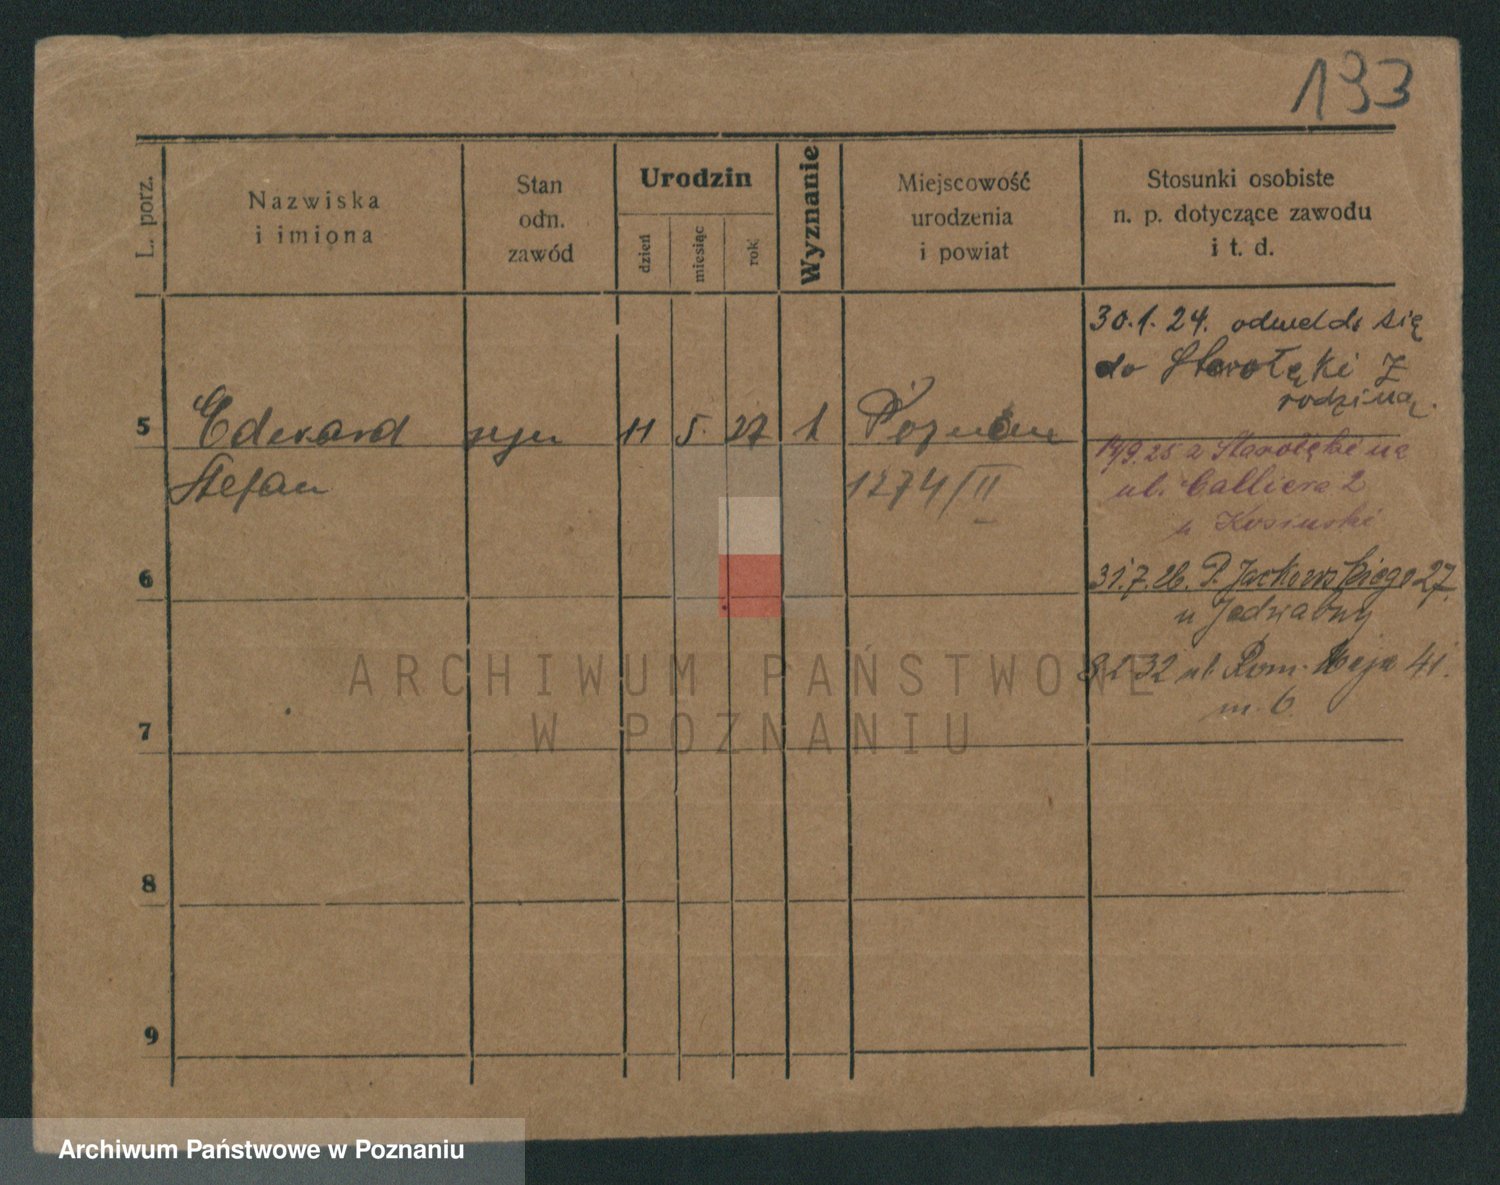 133
L. porz.
Nazwiska
i imiona
Stan
odn.
zawód
Urodzin
dzień
miesiąc
rok
Wyznanie
Miejscowość
urodzenia
i powiat
Stosunki osobiste
n. p. dotyczące zawodu
i t. d.
30.1.24. odmelds się
do Starołęki z
rodziną.
5 Edward syn 11 5. 27 1 Poznań
Stefan 1274/II
19/9.25 z Starołęki na
ul. Calliera 2
u Kosinski
6
31.7.26. P. Jackowskiego 27.
u Jedwabny
32 ul. Rom. Maja 41.
m. 6.
7
8
9
ARCHIWUM PAŃSTWOWE
W POZNANIU
Archiwum Państwowe w Poznaniu